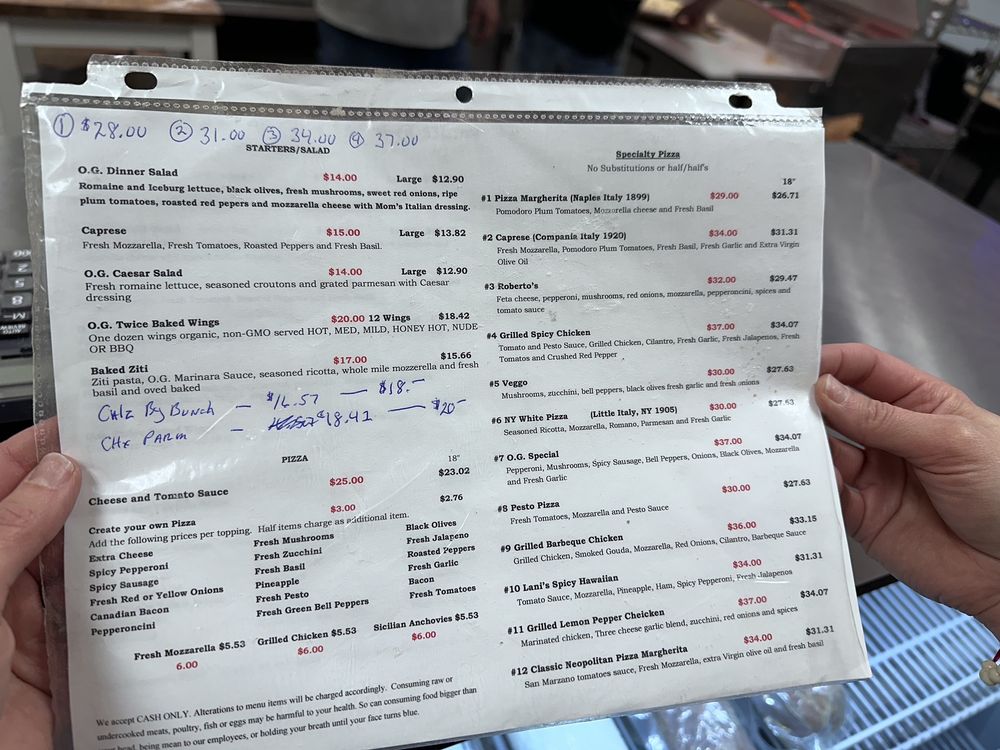 ① $28.00 ② 31.00 ③ 34.00 ④ 37.00
STARTERS/SALAD
O.G. Dinner Salad $14.00 Large $12.90
Romaine and Iceburg lettuce, black olives, fresh mushrooms, sweet red onions, ripe
plum tomatoes, roasted red pepers and mozzarella cheese with Mom's Italian dressing.
Caprese $15.00 Large $13.82
Fresh Mozzarella, Fresh Tomatoes, Roasted Peppers and Fresh Basil.
O.G. Caesar Salad $14.00 Large $12.90
Fresh romaine lettuce, seasoned croutons and grated parmesan with Caesar
dressing
O.G. Twice Baked Wings $20.00 12 Wings $18.42
One dozen wings organic, non-GMO served HOT, MED, MILD, HONEY HOT, NUDE
OR BBQ
Baked Ziti $17.00 $15.66
Ziti pasta, O.G. Marinara Sauce, seasoned ricotta, whole mile mozzerella and fresh
basil and oved baked
CHIZ By BUNCH — $16.57 — $18.-
CHX PARM — $18.41 — $20-
PIZZA 18"
Cheese and Tomato Sauce $25.00 $23.02
Create your own Pizza $3.00 $2.76
Add the following prices per topping. Half items charge as additional item.
Extra Cheese Fresh Mushrooms Black Olives
Spicy Pepperoni Fresh Zucchini Fresh Jalapeno
Spicy Sausage Fresh Basil Roasted Peppers
Fresh Red or Yellow Onions Pineapple Fresh Garlic
Canadian Bacon Fresh Pesto Bacon
Pepperoncini Fresh Green Bell Peppers Fresh Tomatoes
Fresh Mozzarella $5.53 Grilled Chicken $5.53 Sicilian Anchovies $5.53
6.00 $6.00 $6.00
We accept CASH ONLY. Alterations to menu items will be charged accordingly. Consuming raw or
undercooked meats, poultry, fish or eggs may be harmful to your health. So can consuming food bigger than
head, being mean to our employees, or holding your breath until your face turns blue.
Specialty Pizza
No Substitutions or half/half's
18"
#1 Pizza Margherita (Naples Italy 1899) $29.00 $26.71
Pomodoro Plum Tomatoes, Mozzorella cheese and Fresh Basil
#2 Caprese (Compania Italy 1920) $34.00 $31.31
Fresh Mozzarella, Pomodoro Plum Tomatoes, Fresh Basil, Fresh Garlic and Extra Virgin
Olive Oil
#3 Roberto's $32.00 $29.47
Feta cheese, pepperoni, mushrooms, red onions, mozzarella, pepperoncini, spices and
tomato sauce
#4 Grilled Spicy Chicken $37.00 $34.07
Tomato and Pesto Sauce, Grilled Chicken, Cilantro, Fresh Garlic, Fresh Jalapenos, Fresh
Tomatos and Crushed Red Pepper
#5 Veggo $30.00 $27.63
Mushrooms, zucchini, bell peppers, black olives fresh garlic and fresh onions
#6 NY White Pizza (Little Italy, NY 1905) $30.00 $27.63
Seasoned Ricotta, Mozzarella, Romano, Parmesan and Fresh Garlic
#7 O.G. Special $37.00 $34.07
Pepperoni, Mushrooms, Spicy Sausage, Bell Peppers, Onions, Black Olives, Mozzarella
and Fresh Garlic
#8 Pesto Pizza $30.00 $27.63
Fresh Tomatoes, Mozzarella and Pesto Sauce
#9 Grilled Barbeque Chicken $36.00 $33.15
Grilled Chicken, Smoked Gouda, Mozzarella, Red Onions, Cilantro, Barbeque Sauce
#10 Lani's Spicy Hawaiian $34.00 $31.31
Tomato Sauce, Mozzarella, Pineapple, Ham, Spicy Pepperoni, Fresh Jalapenos
#11 Grilled Lemon Pepper Cheicken $37.00 $34.07
Marinated chicken, Three cheese garlic blend, zucchini, red onions and spices
#12 Classic Neopolitan Pizza Margherita $34.00 $31.31
San Marzano tomatoes sauce, Fresh Mozzarella, extra Virgin olive oil and fresh basil